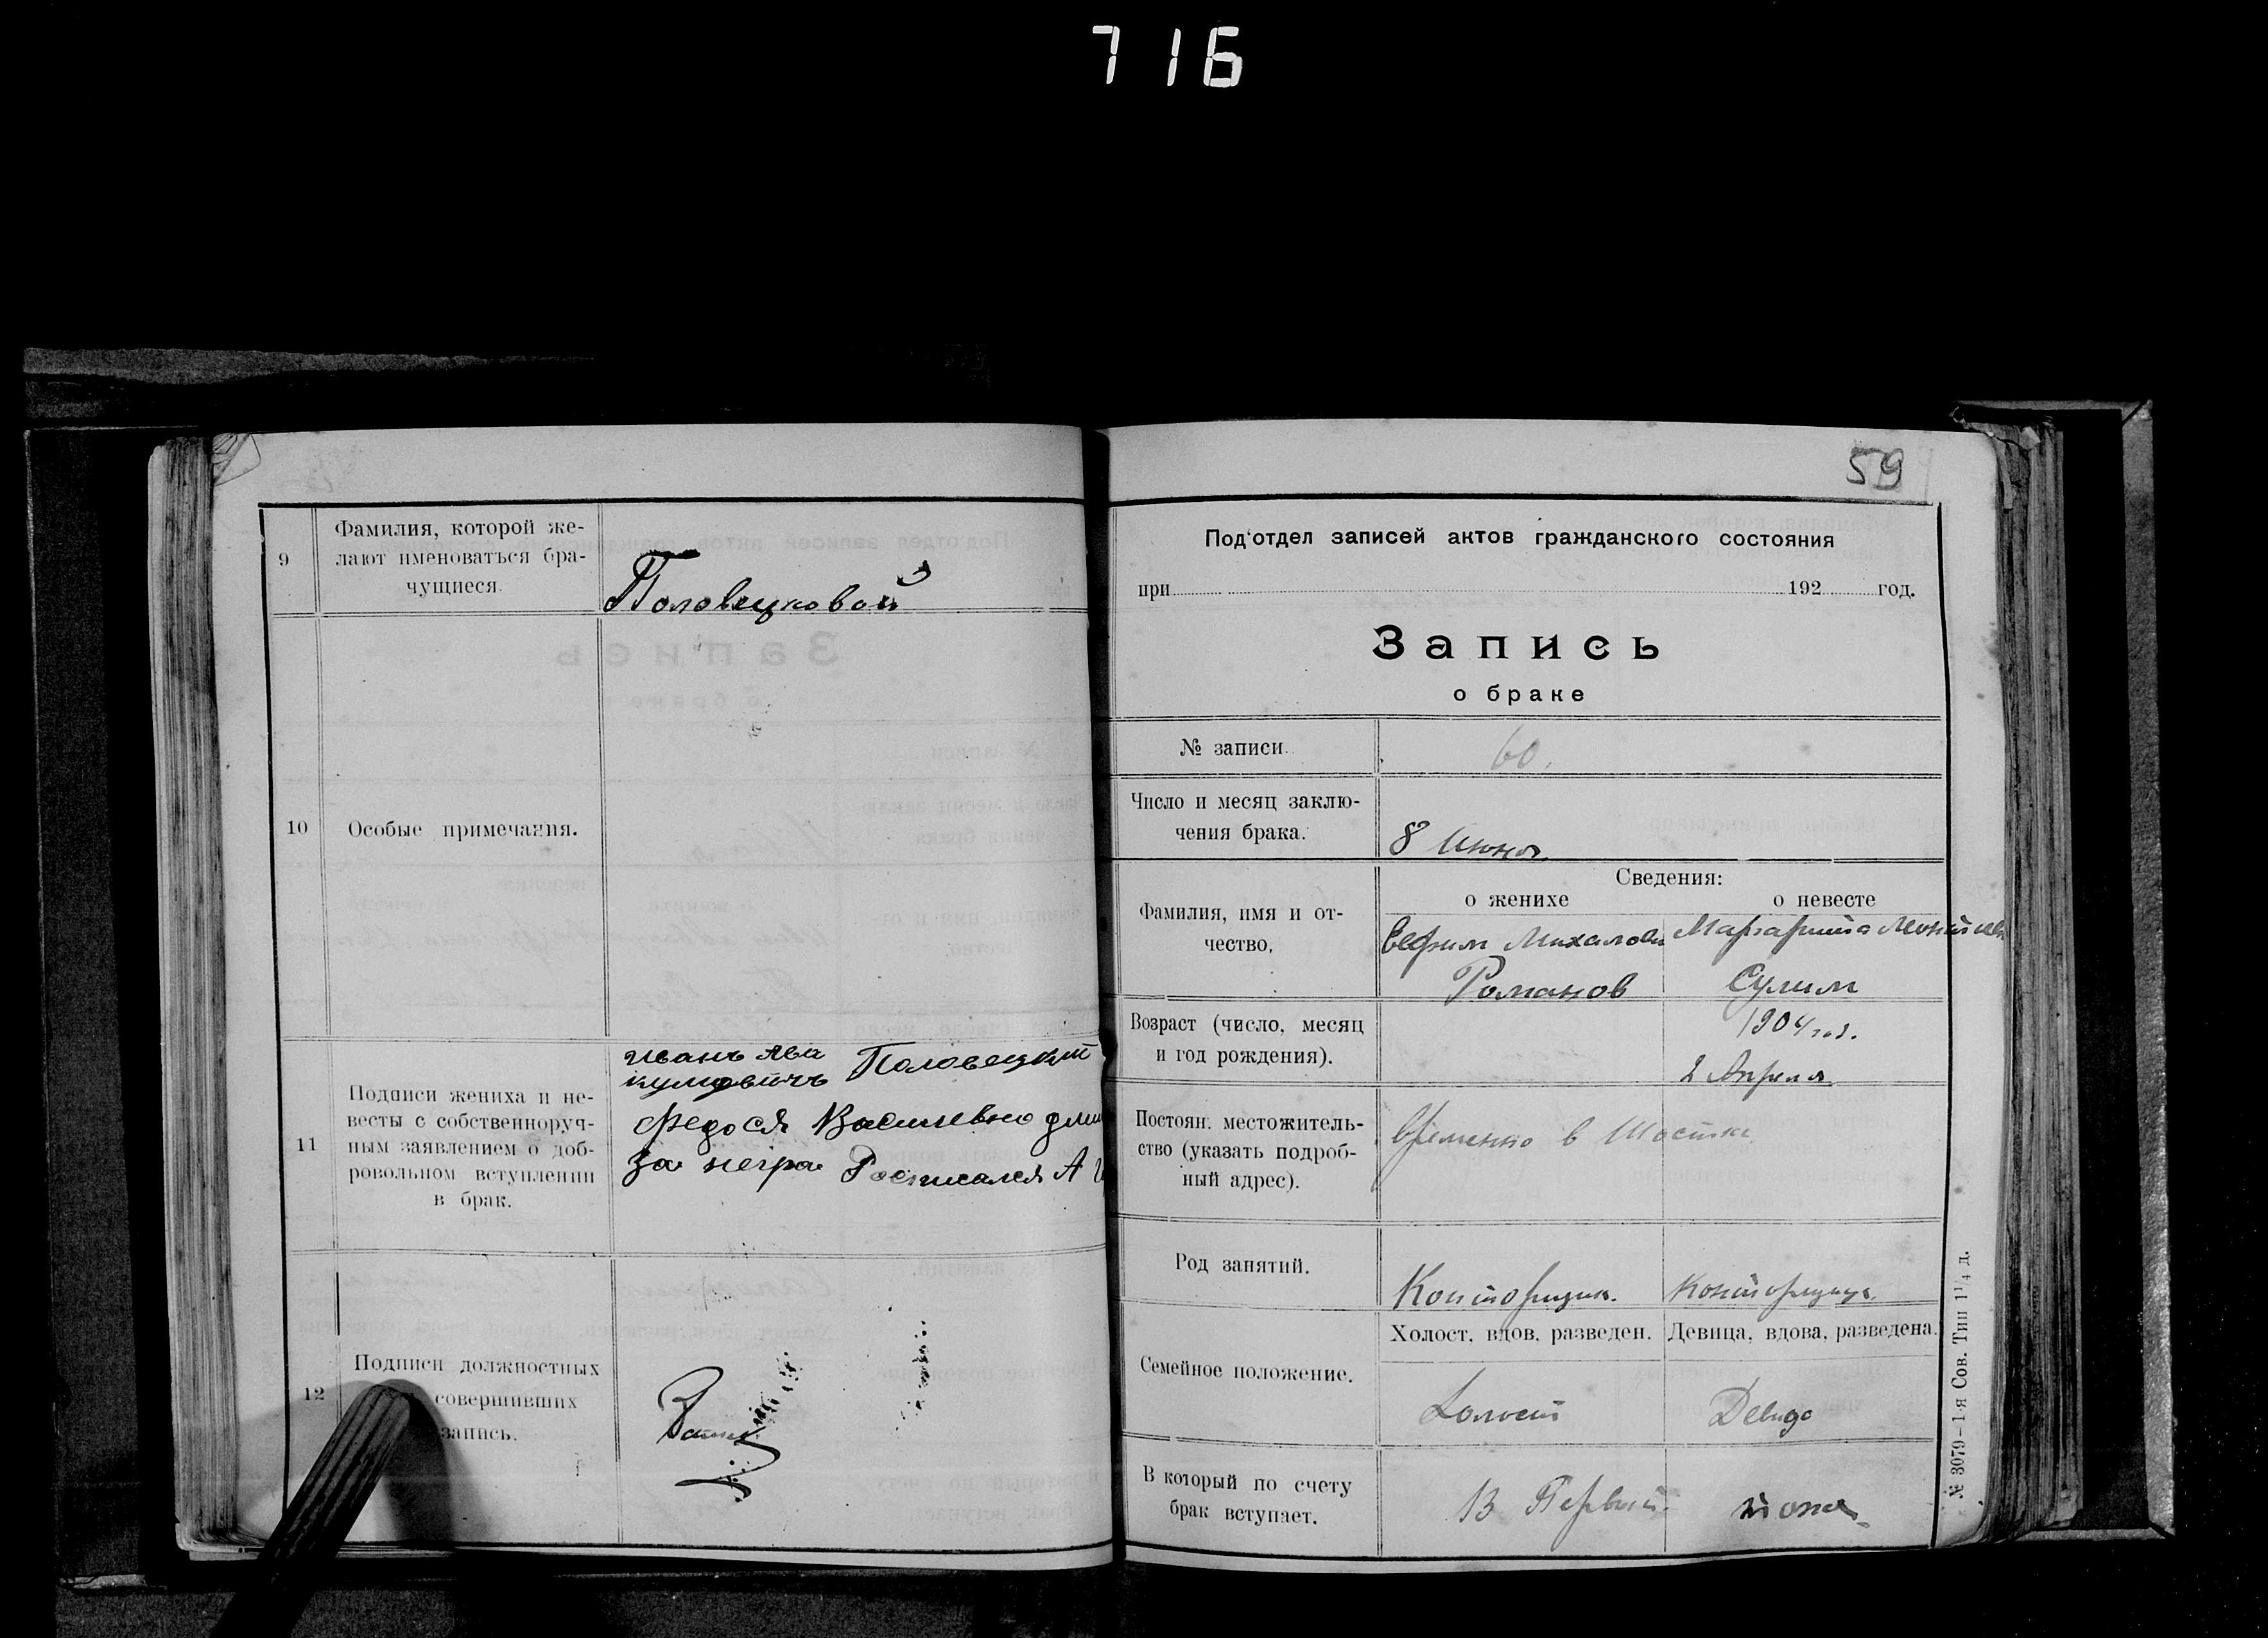 716
9
Фамилия, которой же-
лают именоваться бра-
чущиеся.
Половецковой
10
Особые примечания.
11
Подписи жениха и не-
весты с собственноруч-
ным заявлением о доб-
ровольном вступлении
в брак.
иванъ Ава
кумовичъ Половецкий
Федося Васильевно
За неграм Росписался А
12
Подписи должностных
совершивших
запись.
59
Под'отдел записей актов гражданского состояния
при 192 год.
Запись
о браке
№ записи.
60.
Число и месяц заклю-
чения брака.
8 Июня.
Фамилия, имя и от-
чество,
Сведения:
о женихе
о невесте
Ефим Михалови
Романов
Маргарита
Сулим
Возраст (число, месяц
и год рождения).
1904 год.
2 Апреля.
Постоян. местожитель-
ство (указать подроб-
ный адрес).
Временно в Шостке
Род занятий.
Конторщик.
Конторщица.
Семейное положение.
Холост, вдов, разведен.
Девица, вдова, разведена.
Холост
Девица
В который по счету
брак вступает.
В Первый
тоже
№ 3079–1-я Сов. Тип 1¹/₄ д.